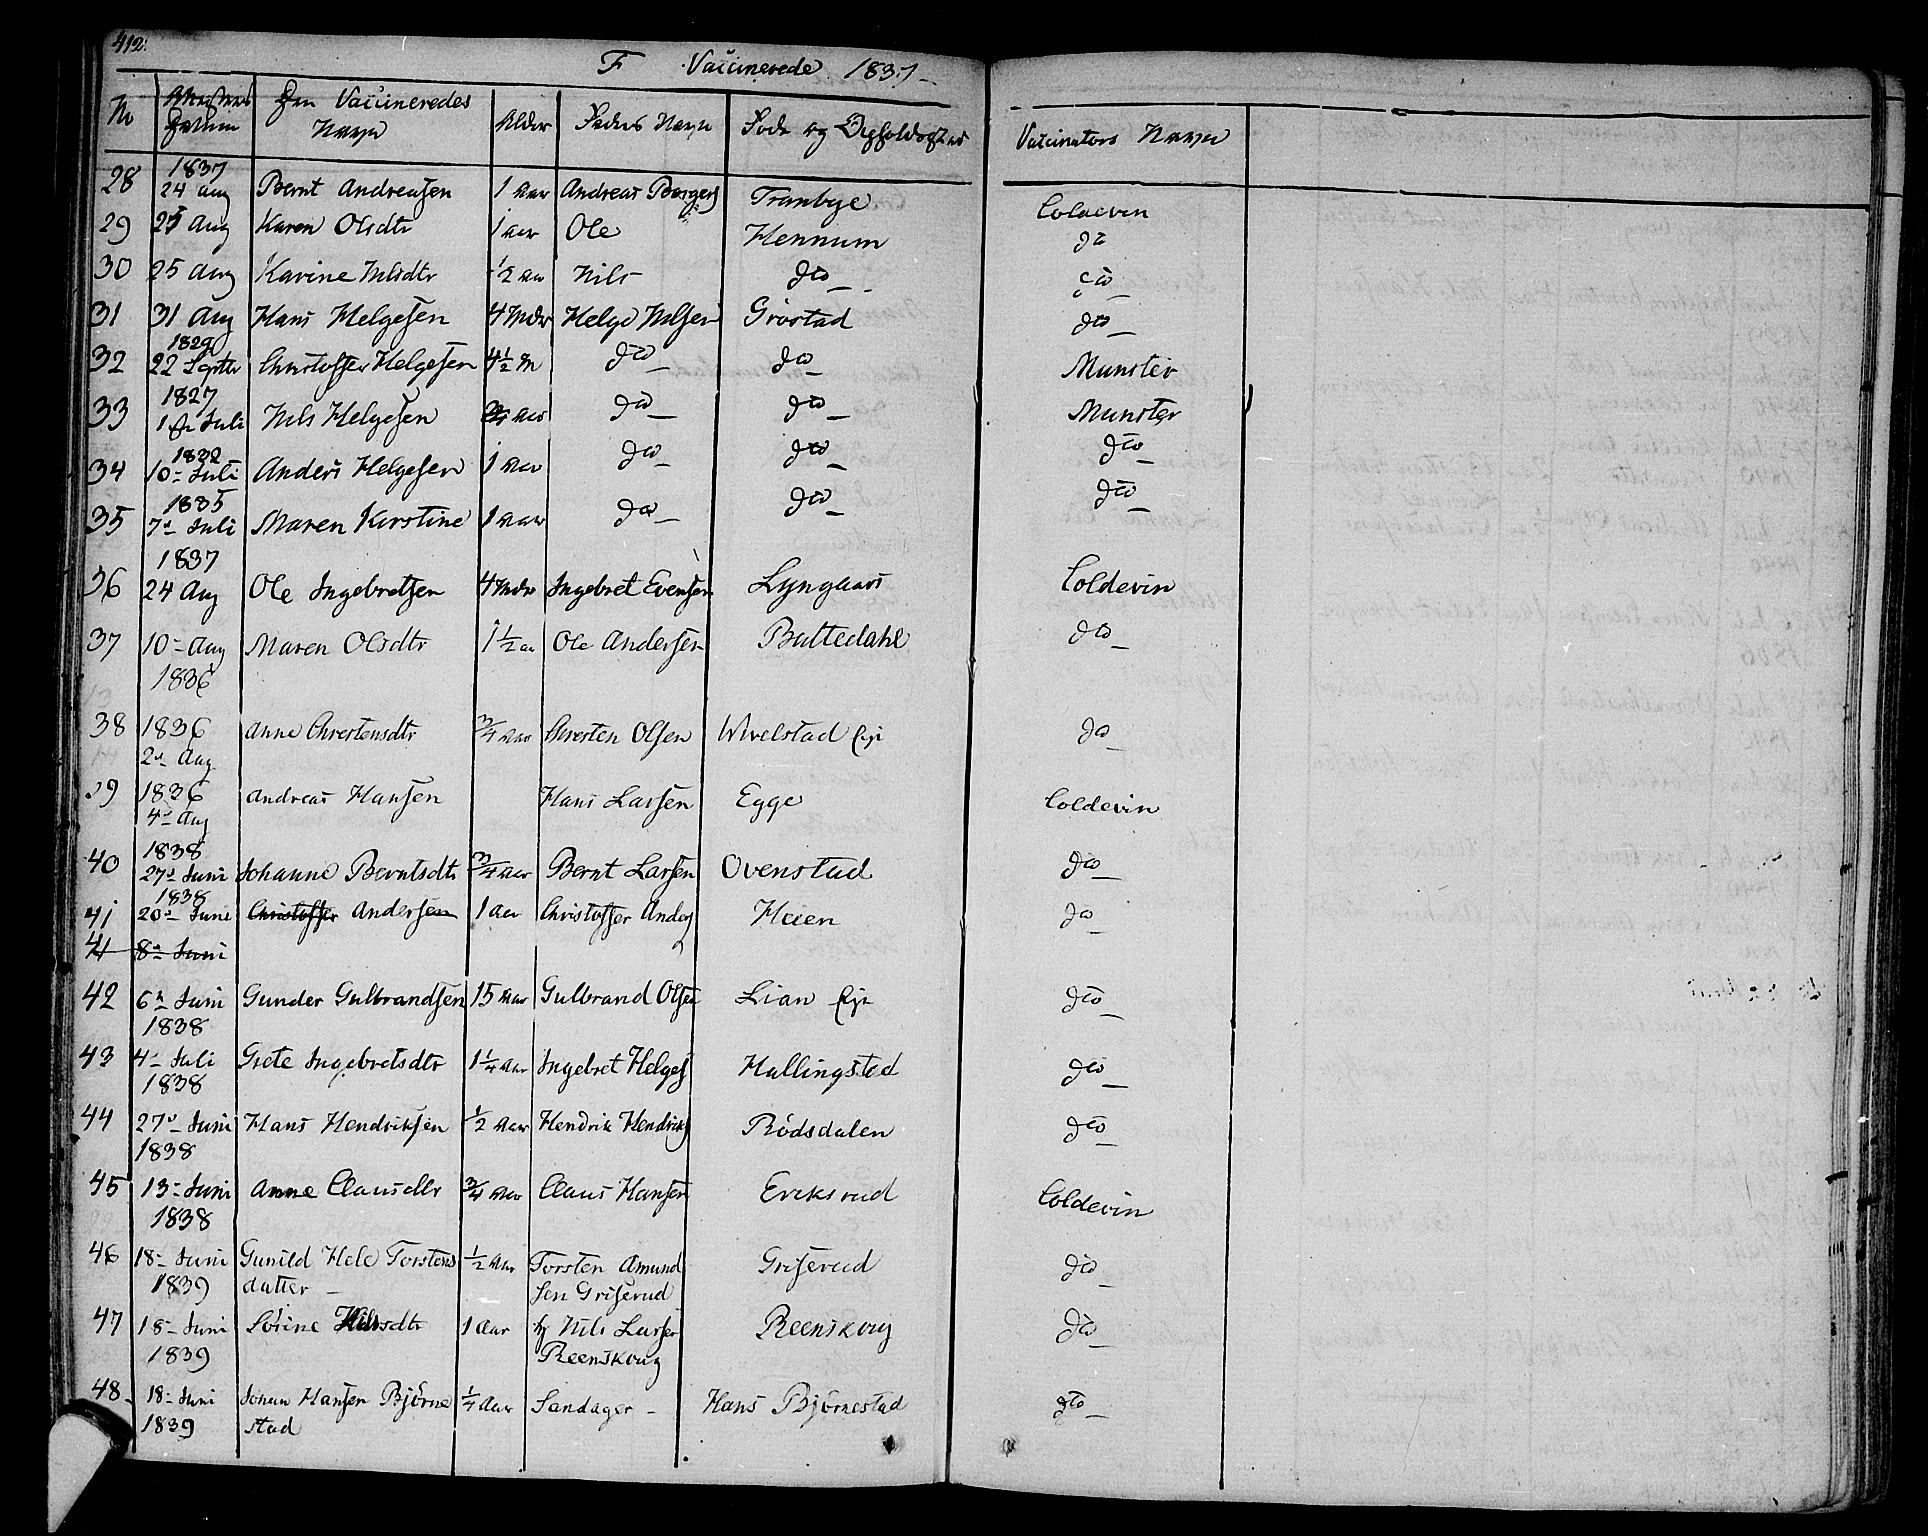 412.
F Vaccinerede 1837
No Datum Den Vaccineredes Navn Alder Faders Navn Føde og Opholdssted Vaccinators Navn
28 1837 24 Aug Bernt Andreasen 1 Aar Andreas Tranbye Coldevin
29 25 Aug Karen Olsdtr 1 Aar Ole Hennum do
30 25 Aug Karine Nilsdtr ½ Aar Nils do do
31 31 Aug Hans Helgesen 4 Mdr Helge Nilsen Gröstad do
32 1829 22 Septbr Christoffer Helgesen 4½ M do do Munster
33 1827 Juli Nils Helgesen Aar do do Munster
34 1832 10 Juli Anders Helgesen 1 Aar do do do
35 1835 7d Juli Maren Kirstine 1 Aar do do do
36 1837 24 Aug Ole Ingebretsen 4 Mdr Ingebret Evensen Lyngaas Coldevin
37 10 Aug 1836 Maren Olsdtr 1½ Aar Ole Andersen Buttedahl do
38 1836 2d Aug Anne Chrestensdtr ¾ Aar Chresten Olsen Wivelstad Eje do
39 1836 4d Aug Andreas Hansen Hans Larsen Egge Coldevin
40 1838 27d Juni Johanne Berntsdtr ¾ Aar Bernt Larsen Ovenstad do
41 1838 20d Juni Christoffer Andersen 1 Aar Christoffer Anders Heien do
41 8d Juni
42 6d Juni 1838 Gunder Gulbrandsen 15 Aar Gulbrand Olsen Lian Eje do
43 4 Juli 1838 Grete Ingebretsdtr 1¼ Aar Ingebret Helges Hallingstad do
44 27d Juni 1838 Hans Hendriksen ½ Aar Hendrik Hendriks Rödsdalen do
45 13 Juni 1838 Anne Clausdtr ¾ Aar Claus Hansen Eriksrud Coldevin
46 18 Juni 1839 Gunild Hele Torstensdatter ½ Aar Torsten Amundsen Griserud Griserud do
47 18 Juni 1839 Sörine Nilsdtr 1 Aar Nils Larsen Reenskoug Reenskoug do
48 18 Juni 1839 Johan Hansen Björnestad ¼ Aar Sandager Hans Björnestad do